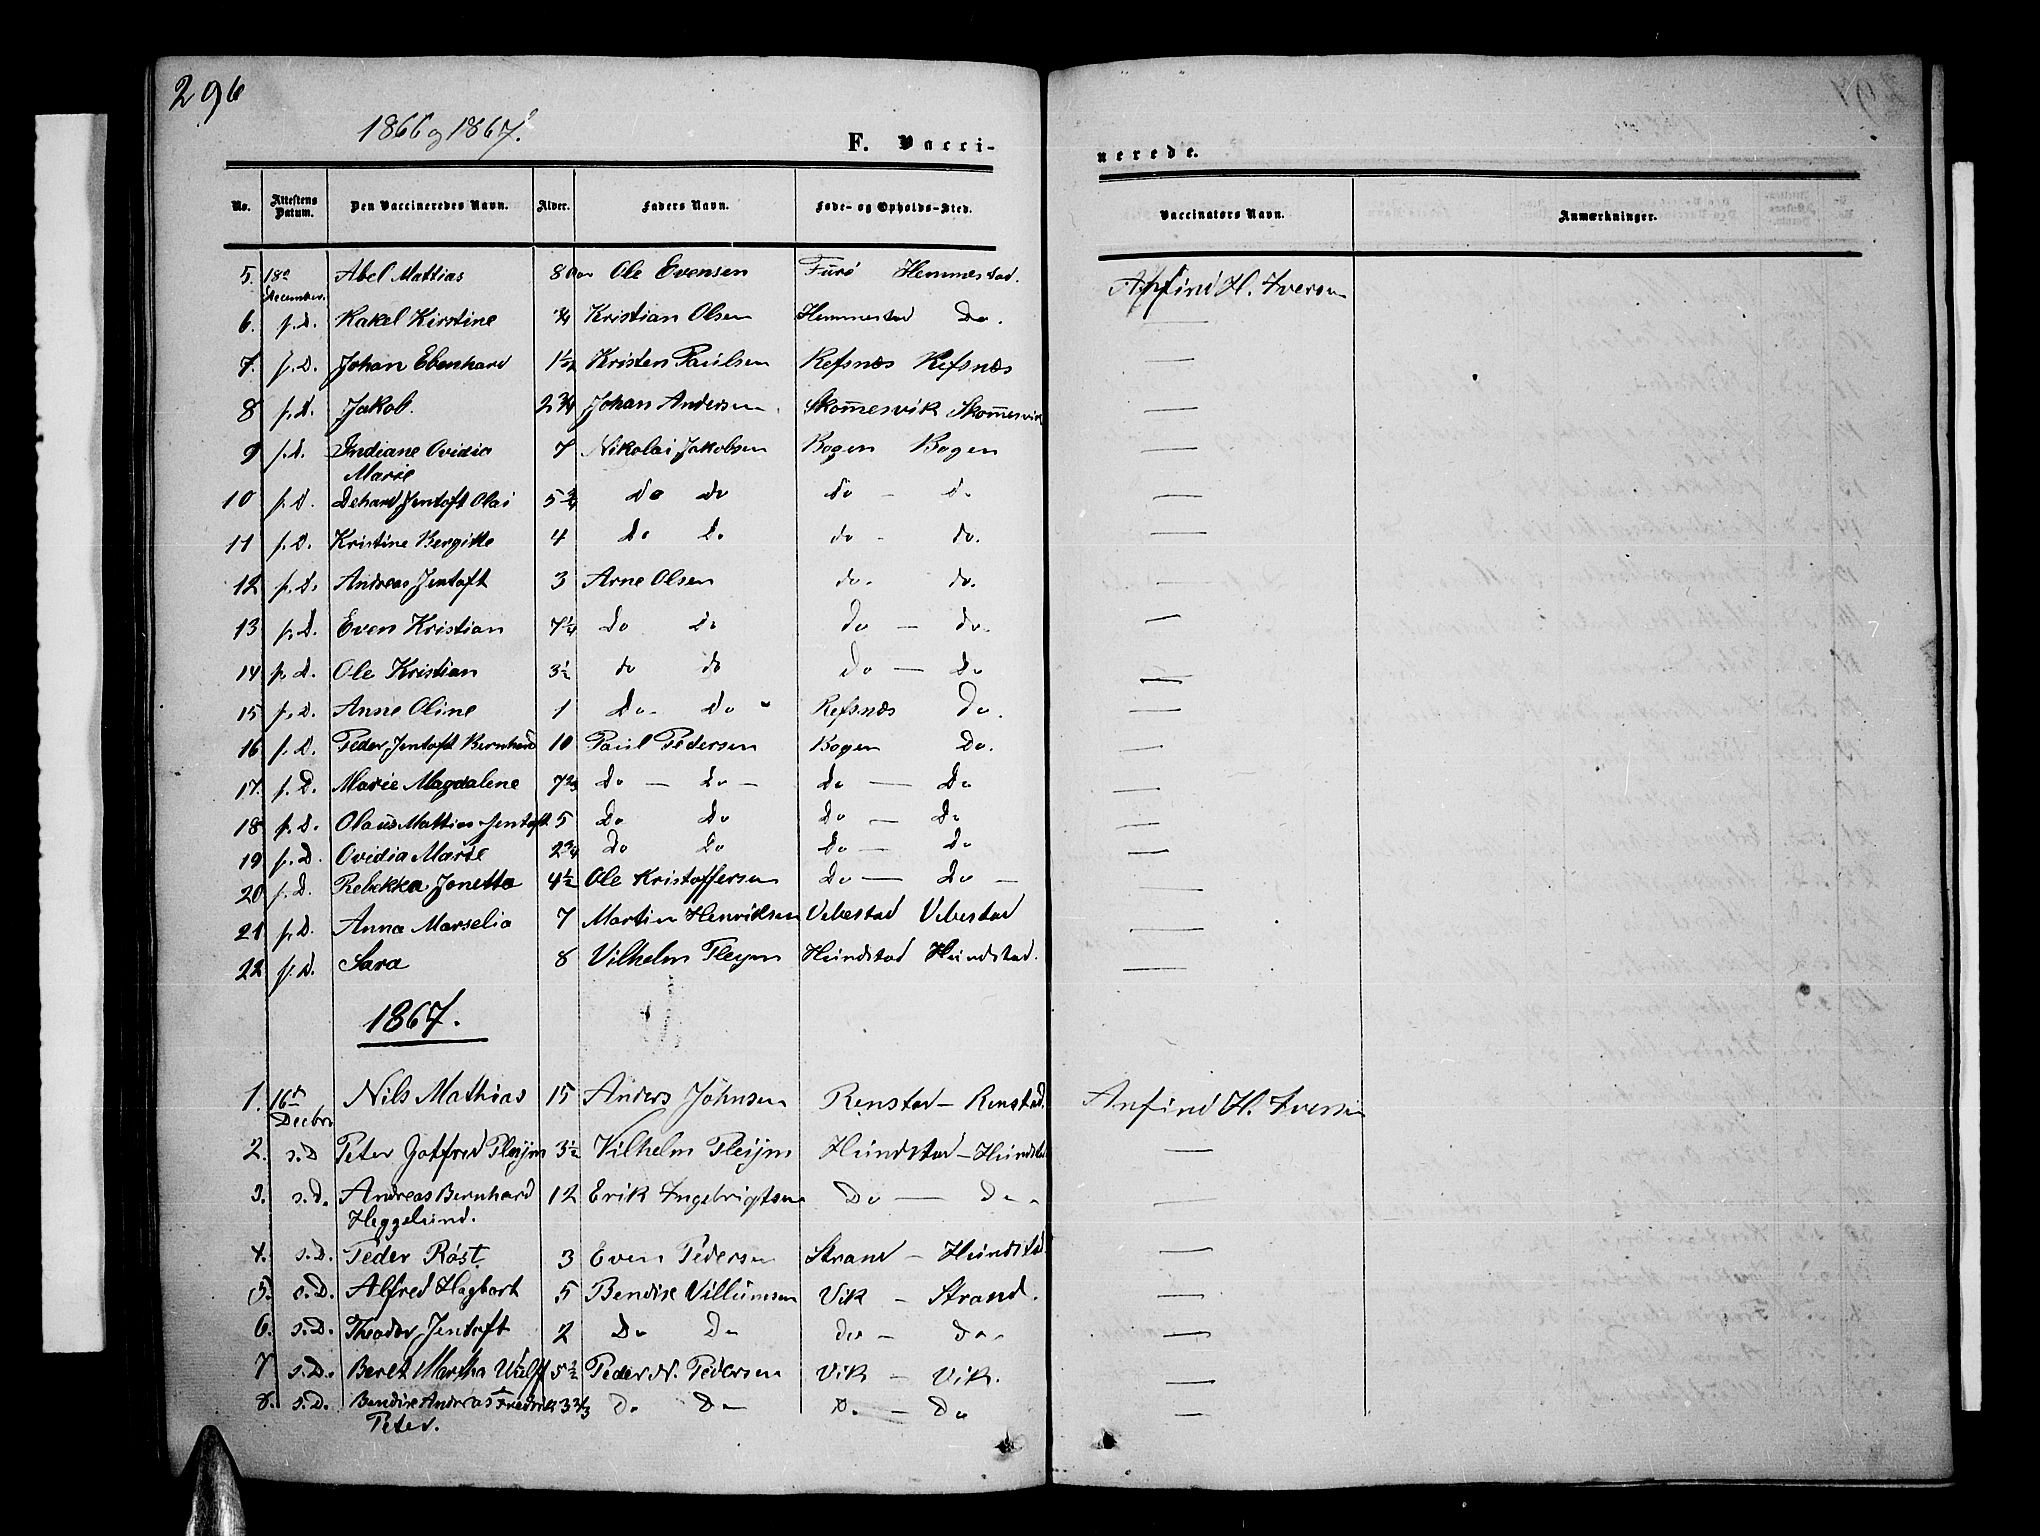 296
1866 og 1867.
F. Vacci-
nerede.
No. Attestens Datum. Den Vaccineredes Navn. Alder. Faders Navn. Føde- og Opholds-Sted. Vaccinators Navn. Anmærkninger.
5. 18de December. Abel Mattias 8 Ole Evensen Furø Hemmestad. Anfind H. Iversen
6. s.D. Rakel Kirstine ¾ Kristian Olsen Hemmestad Do. —
7. s.D. Johan Ebenhard 1½ Kristen Paulsen Refsnæs Refsnæs —
8 s.D. Jakob. 2¾ Johan Andersen. Skom̅esvik Skom̅esvik —
9 s.D. Indiane Ovidia 7 Nikolai Jakobsen Bogen Bogen
Marie
10 s.D. Dehard Jentoft Olai 5¾ Do do do - do —
11 s.D. Kristine Bergitte 4 Do Do do - do. —
12 s.D. Andreas Jentoft 3 Arne Olsen do. do. —
13 s.D. Even Kristian 7¼ Do Do Do — do. —
14 s.D. Ole Kristian 3½ do do Do — Do —
15 s.D. Anne Oline 1 Do- Do Refsnæs Do. —
16 s.D. Peder Jentoft Bernhard 10 Paul Pedersen Bogen Do. —
17. s.D. Marie Magdalene 7⅔ Do — Do — Do — Do —
18 s.D. Olaus Mattias Jentoft 5 Do Do Do — Do —
19 s.D. Ovidia Marie 2¾ Do Do Do — Do —
20 s.D. Rebekka Jonette 4½ Ole Kristoffersen Do — Do — —
21 s.D. Anna Marselia 7 Martin Henriksen Vebestad Vebestad —
22 s.D. Sara 8 Vilhelm Pleijm Hundstad Hundstad. —
1867.
1. 16de Decbr Nils Mathias 15 Anders Johnsen Renstad — Renstad. Anfind H. Iversen
2. s.D Peter Gotfred Pleijm 3½ Vilhelm Pleijm Hundstad — Hundstad —
3. s.D. Andreas Bernhard 12 Erik Ingebrigtsen Do — Do —
Heggelund.
4. s.D. Peder Røst 3 Even Pedersen Strand — Hundstad —
5. s.D. Alfred Hagbart 5 Bendix Villumsen Vik — Strand. —
6. s.D. Theodor Jentoft 2 Do Do do — do. —
7 s.D. Beret Martha Wulff 5½ Peder N. Pedersen Vik — Vik. —
8. s.D. Bendix Andreas Fredrik 3⅔ Do Do Do — Do —
Peter.